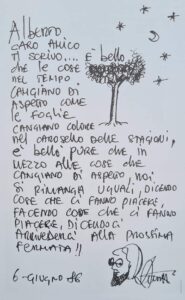 Albero,
CARO AMICO
TI SCRIVO.... È bello
CHE LE COSE
NEL TEMPO
CANGIANO DI
ASPETTO COME
LE FOGLIE
CANGIANO COLORE
NEL CAROSELLO DELLE STAGIONI,
E' BELLO PURE CHE IN
MEZZO ALLE COSE CHE
CANGIANO DI ASPETTO, NOI
SI RIMANGA UGUALI, DICENDO
COSE CHE CI FANNO PIACERE,
FACENDO COSE CHE CI FANNO
PIACERE, DICENDOCI
ARRIVEDERCI ALLA PROSSIMA
FERMATA!!
6-GIUGNO 86